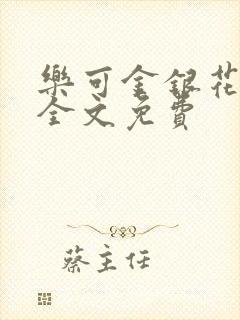 樂可金銀花
全文免費
蔡主任